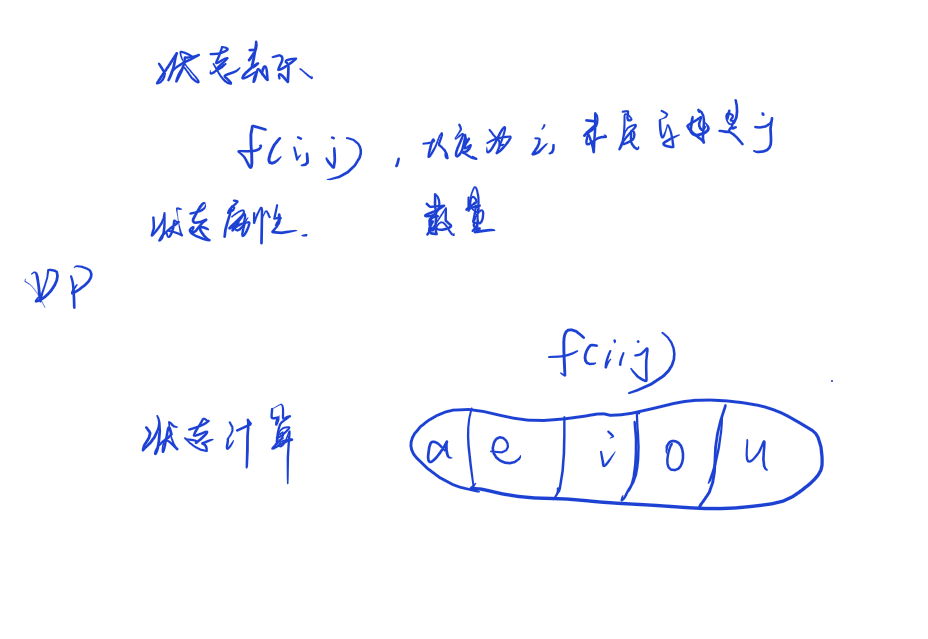 状态表示、
f(i,j),长度为i,末尾字母是j
状态属性. 数量
DP
f(i,j)
状态计算
a e i o u